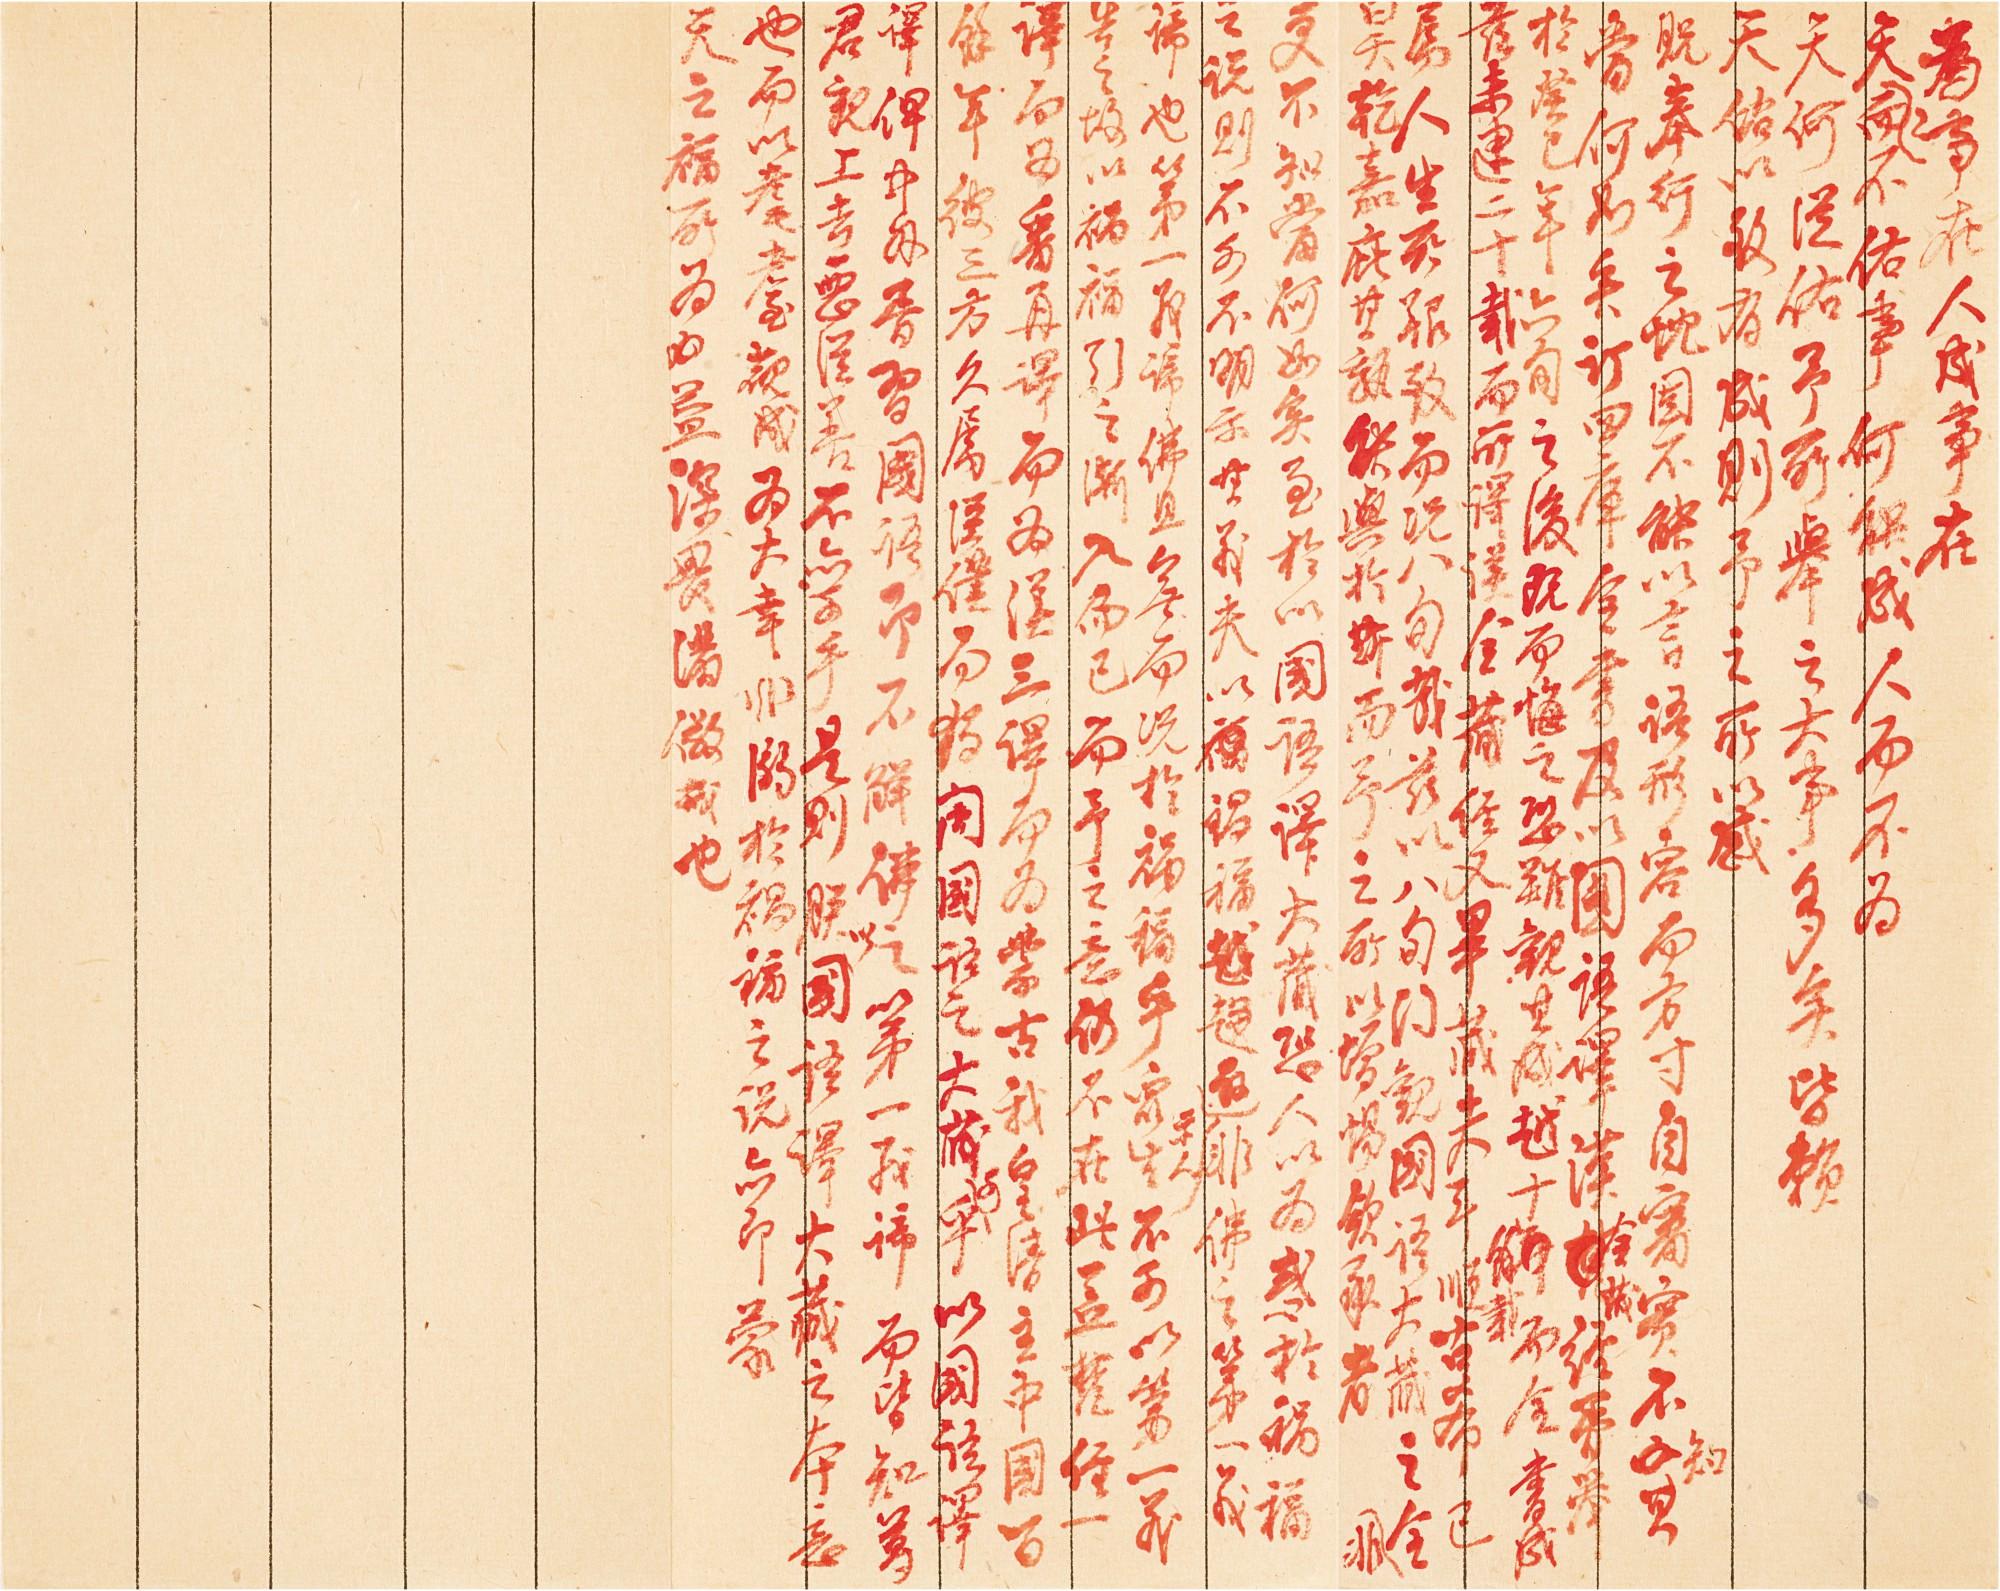 為事在人成事在
天天而不佑事何能成人而不為
天何從佑予所舉之大事多矣皆賴
天佑以致有成則予之所以感
貺奉行之愧固不能以言語形容而方寸自審實不知其
當何如矣訂四庫全書及以國語譯漢全藏經事舉
於癸巳年六旬之後既而悔之恐難觀其成越十餘載而全書成
茲未逮二十載而所譯漢全藏經又畢藏夫耳順古希已
屬人生所艱致而況八旬哉茲以八旬開觀國語大藏之全非
昊天乾嘉庇其孰能與於斯而予之所以增惕欽承者
更不知當何如矣至於以國語譯大藏恐人以為惑於禍福
之說則不可不明示其義夫以禍福趨避非佛之第一義
諦也第一義諦佛且無而況於禍福乎眾生不可以第一義
告之故以禍福引之漸入而已而予之意仍不在此蓋梵經一
譯而為番再譯而為漢三譯而為蒙古我皇清主中國百
餘年彼三方久屬臣僕而獨闕國語之大藏可乎以國語譯
譯俾中外胥習國語即不解佛之第一義諦而皆知尊
君親上去惡從善不亦可乎是則朕以國語譯大藏之本意
也而以耄耋觀成為大幸非溺於禍福之說亦即蒙
天之福所為而益深畏滿儆戒也